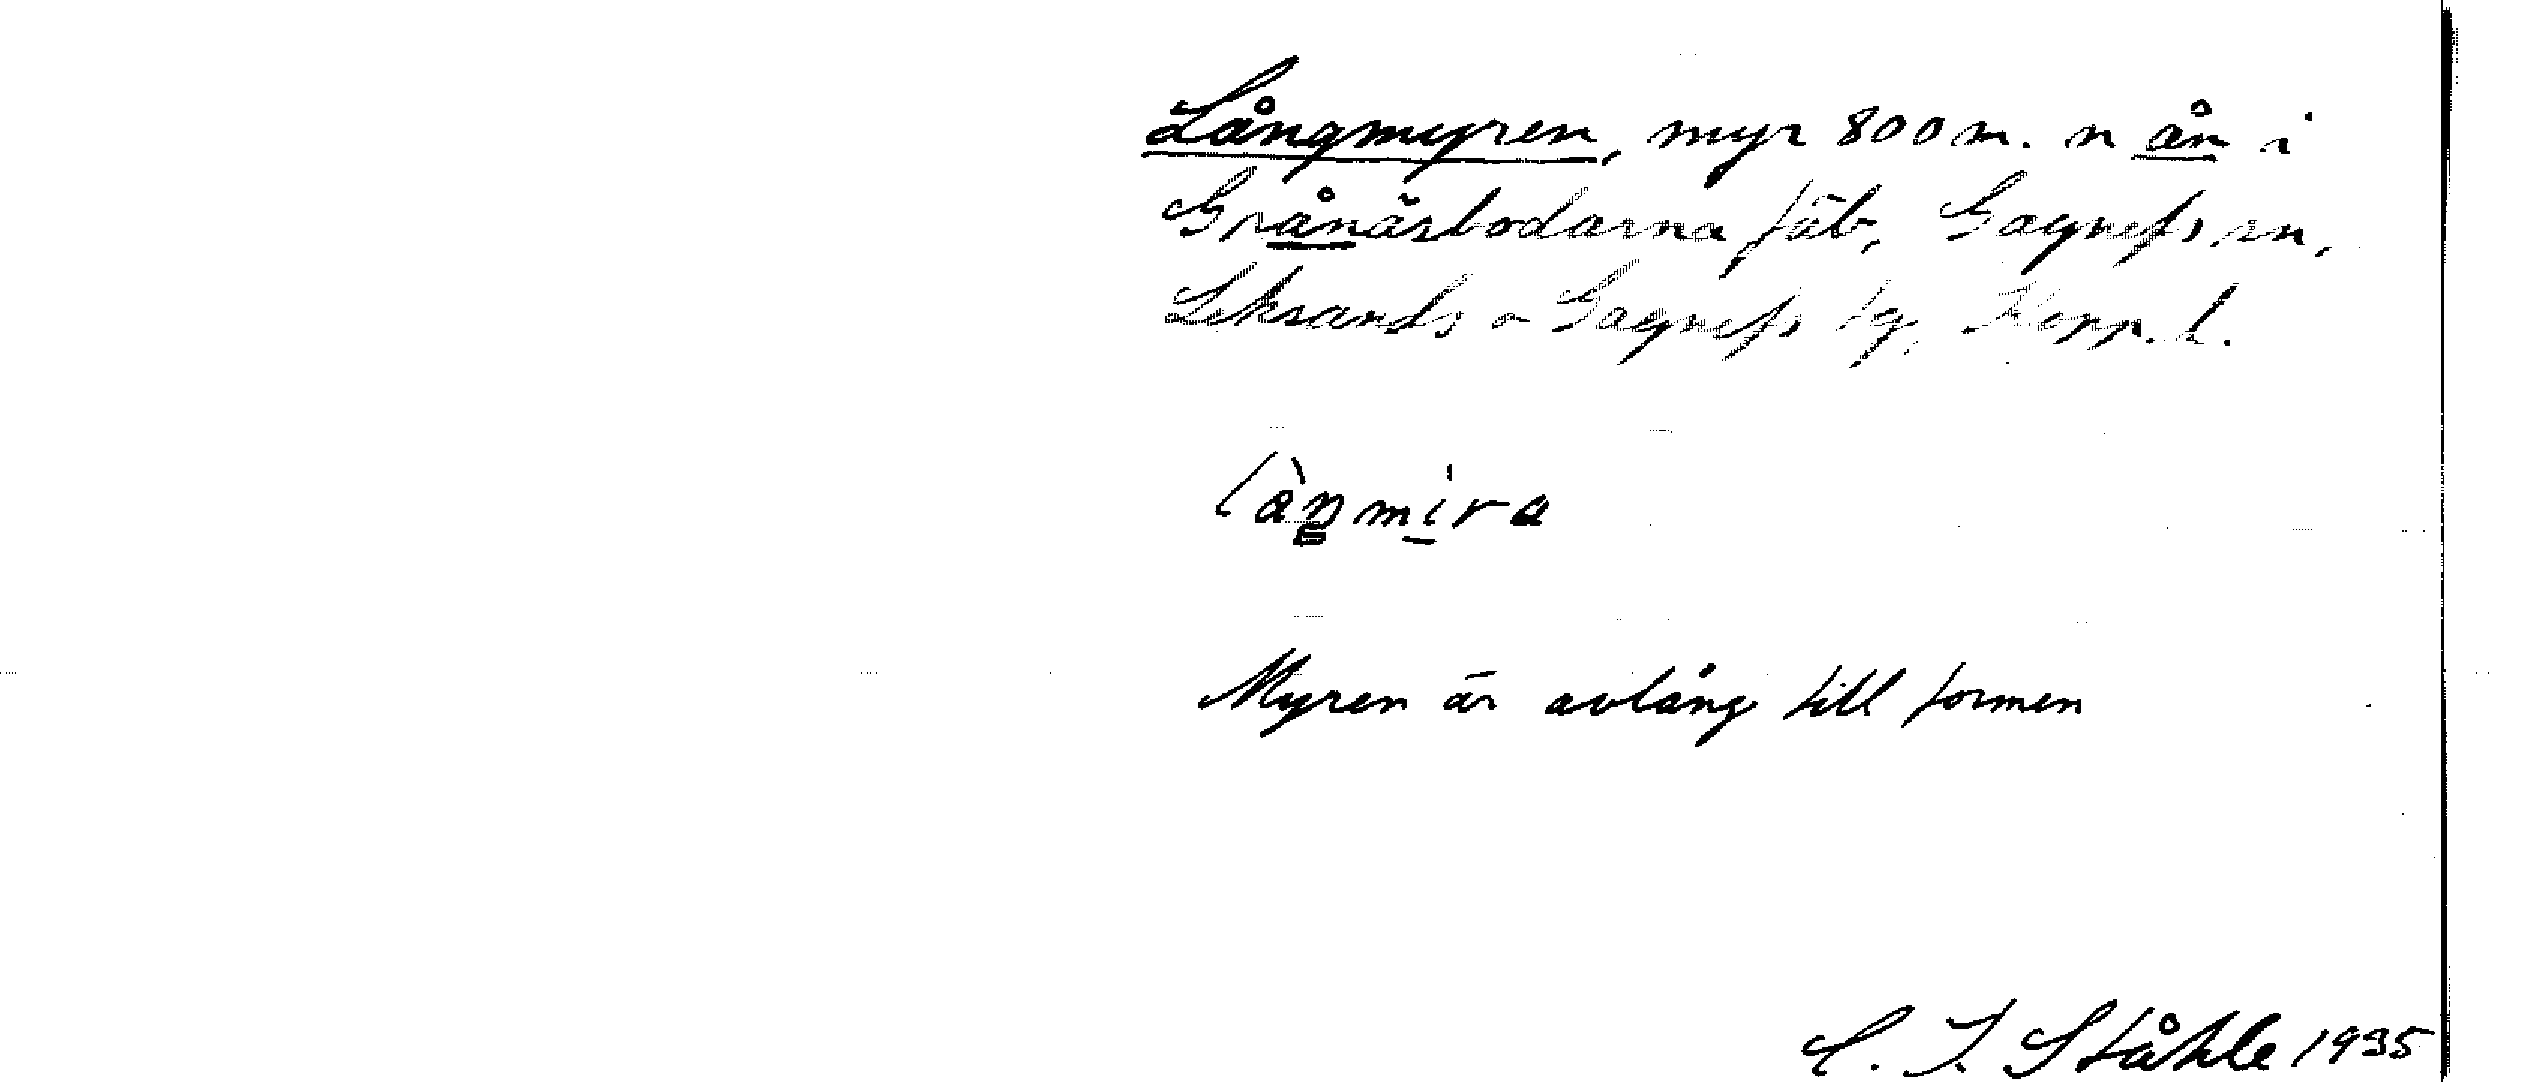 Långmyren, myr 800 m. n ån i
Grånäsbodarna fäb, Gagnefs sn,
Leksands o Gagnefs tg, Kopp. l.
làŋmira
Myren är avlång till formen
C. I. Ståhle 1935